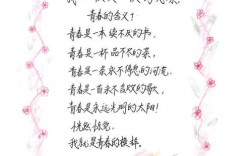 青春的含义?
青春是一本读不厌的书,
青春是一杯品不尽的茶,
青春是一条永不停息的河流,
青春是一首永不言败的歌,
青春是永远光明的太阳!
恍然惊觉,
我就是青春的模样。